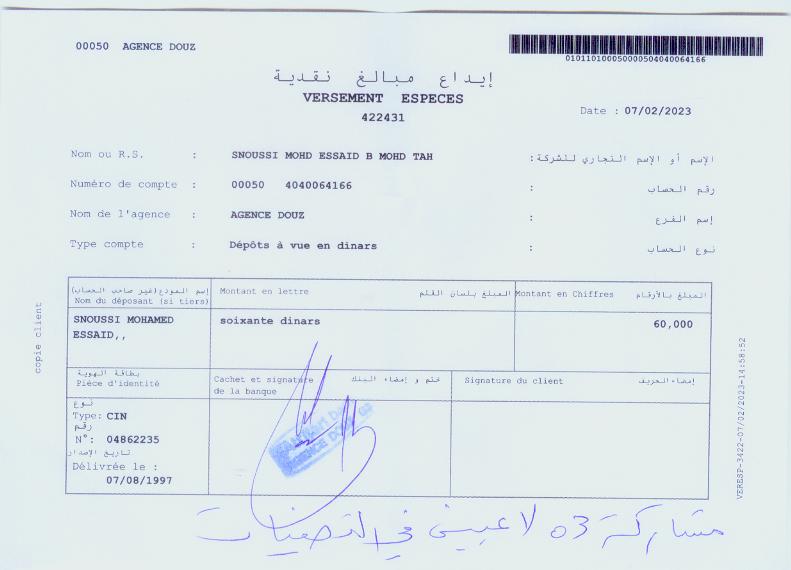 00050 AGENCE DOUZ
01011010005000050404006416​6
إيداع مبالغ نقدية
VERSEMENT ESPECES
422431
Date : 07/02/2023
Nom ou R.S. : SNOUSSI MOHD ESSAID B MOHD TAH الإسم أو الإسم التجاري للشركة:
Numéro de compte : 00050 4040064166 رقم الحساب :
Nom de l'agence : AGENCE DOUZ إسم الفرع :
Type compte : Dépôts à vue en dinars نوع الحساب :
إسم المودع(غير صاحب الحساب)
Nom du déposant (si tiers)
Montant en lettre المبلغ بلسان القلم
Montant en Chiffres المبلغ بالأرقام
SNOUSSI MOHAMED
ESSAID,,
soixante dinars
60,000
بطاقة الهوية
Pièce d'identité
Cachet et signature ختم و إمضاء البنك
de la banque
Signature du client إمضاء الحريف
نوع
Type: CIN
رقم
N°: 04862235
تاريخ الإصدار
Délivrée le :
07/08/1997
AGENCE DOUZ
copie client
VERESP-3422-07/02/2023-14:58:52
مشاركة 03 لاعبين في التصفيات